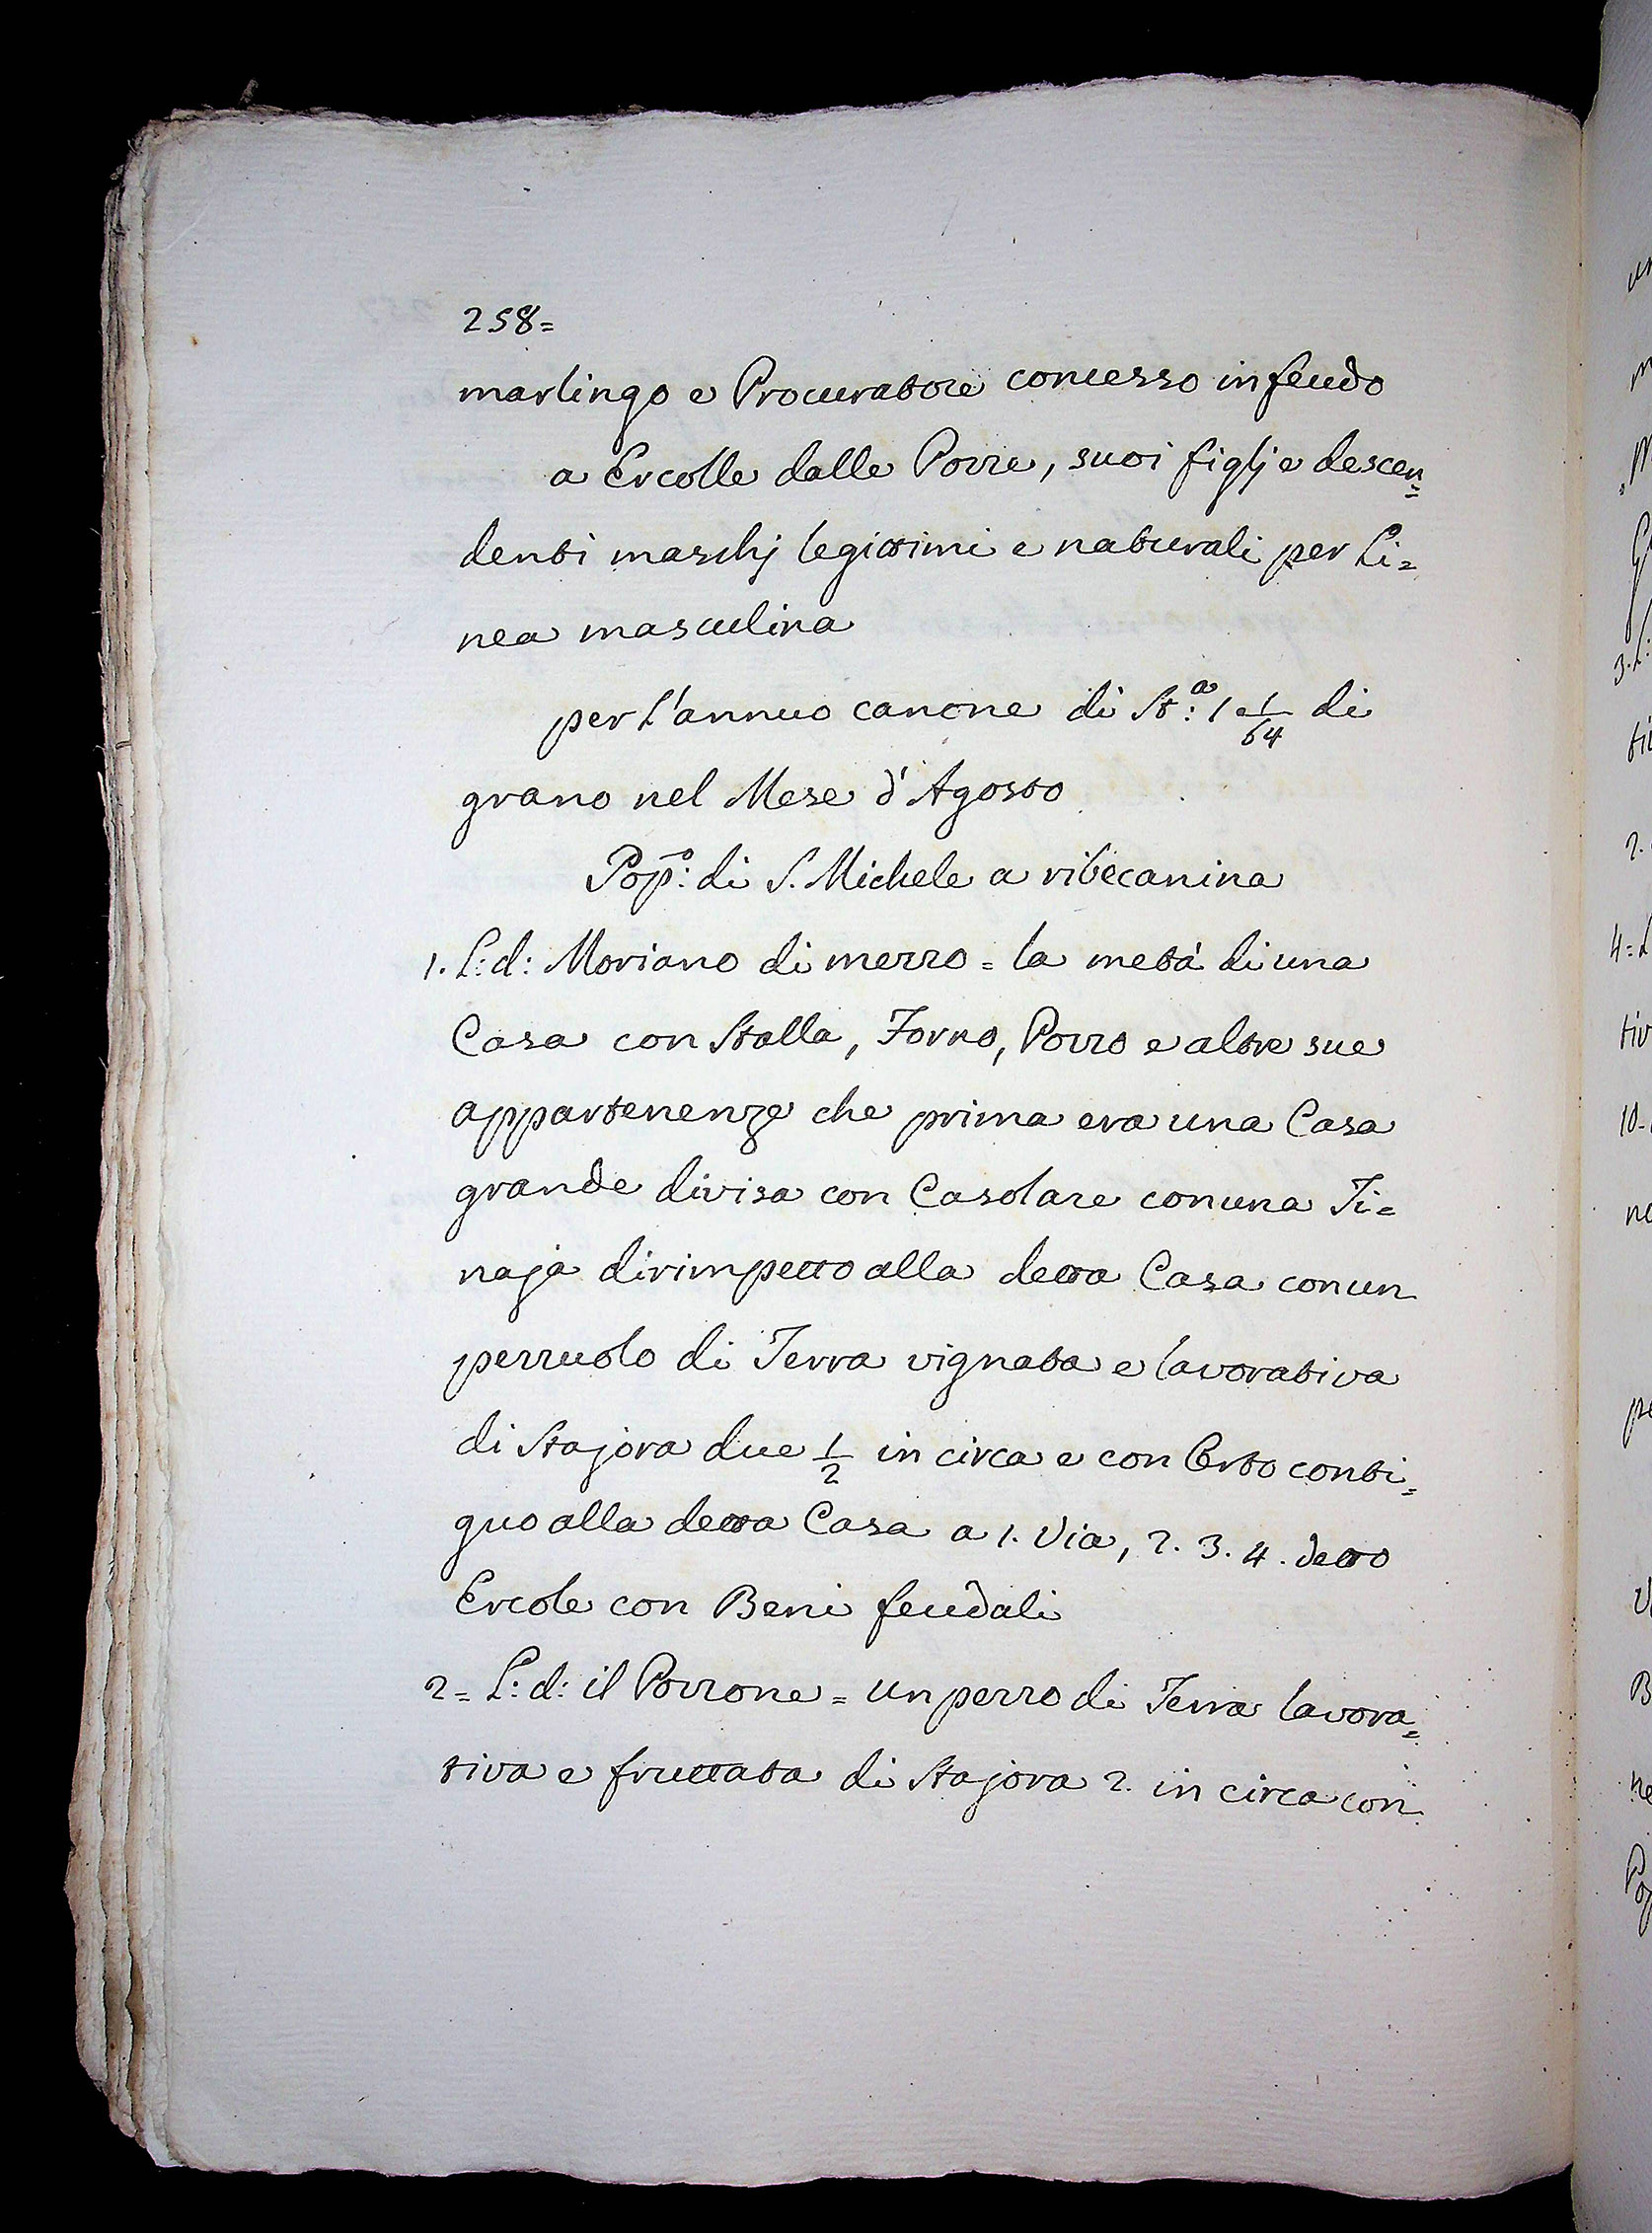 258=
marlingo e Procuratore concesso in feudo
a Ercolle dalle Pozze, suoi figlj e descen=
denti maschj legittimi e naturali per Li=
nea masculina
per l'annuo canone di St:ª 1 e 1/64 di
grano nel Mese d'Agosto
Pop:º di S. Michele a ribecanina
1. L: d: Moriano di mezzo = la metà di una
Casa con Stalla, Forno, Pozzo e altre sue
appartenenze che prima era una Casa
grande divisa con Casolare con una Ti=
naja dirimpetto alla detta Casa con un
pezzuolo di Terra vignata e lavorativa
di Stajora due 1/2 in circa e con Orto conti=
guo alla detta Casa a 1. Via, 2. 3. 4. detto
Ercole con Beni feudali
2= L: d: il Pozzone = un pezzo di Terra lavora=
tiva e fruttata di Stajora 2. in circa con